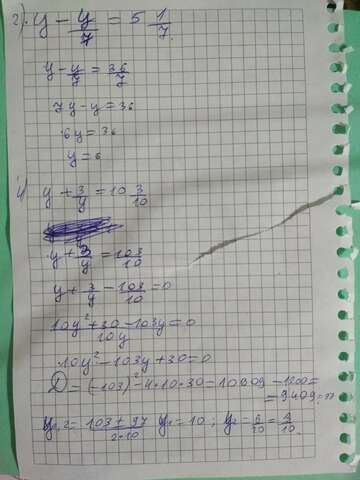 2). y - y/7 = 5 1/7
y - y/7 = 36/7
7y - y = 36
6y = 36
y = 6
4) y + 3/y = 10 3/10
y + 3/y = 103/10
y + 3/y - 103/10 = 0
10y² + 30 - 103y = 0
10y
10y² - 103y + 30 = 0
D = (-103)² - 4·10·30 = 10609 - 1200 =
= 9409 = 97
y₁,₂ = 103 ± 97 / 2·10 y₁ = 10 ; y₂ = 6/20 = 3/10